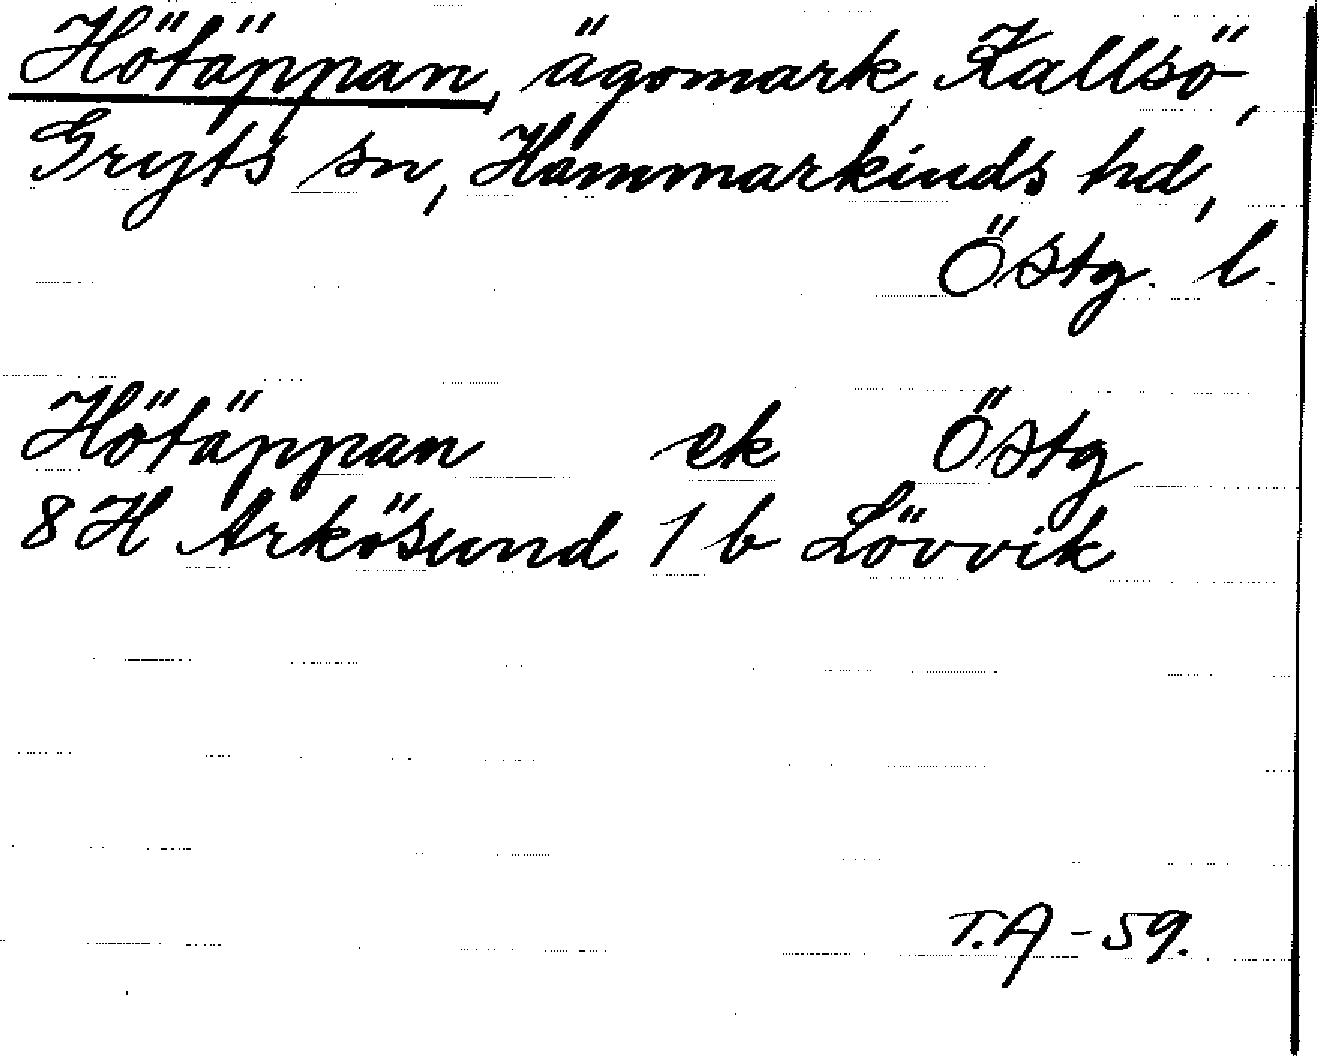 Hötäppan, ägomark, Kallsö,
Gryts sn, Hammarkinds hd,
Östg. l.
Hötäppan ek Östg
8 H Arkösund 1 b Lövvik
T.A -59.